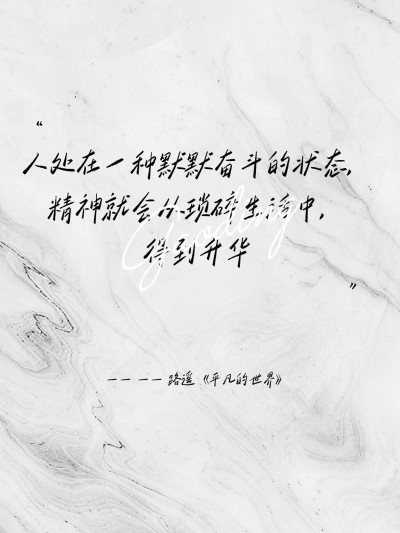 “
人处在一种默默奋斗的状态,
精神就会从琐碎生活中,
得到升华
”
—— —— 路遥《平凡的世界》